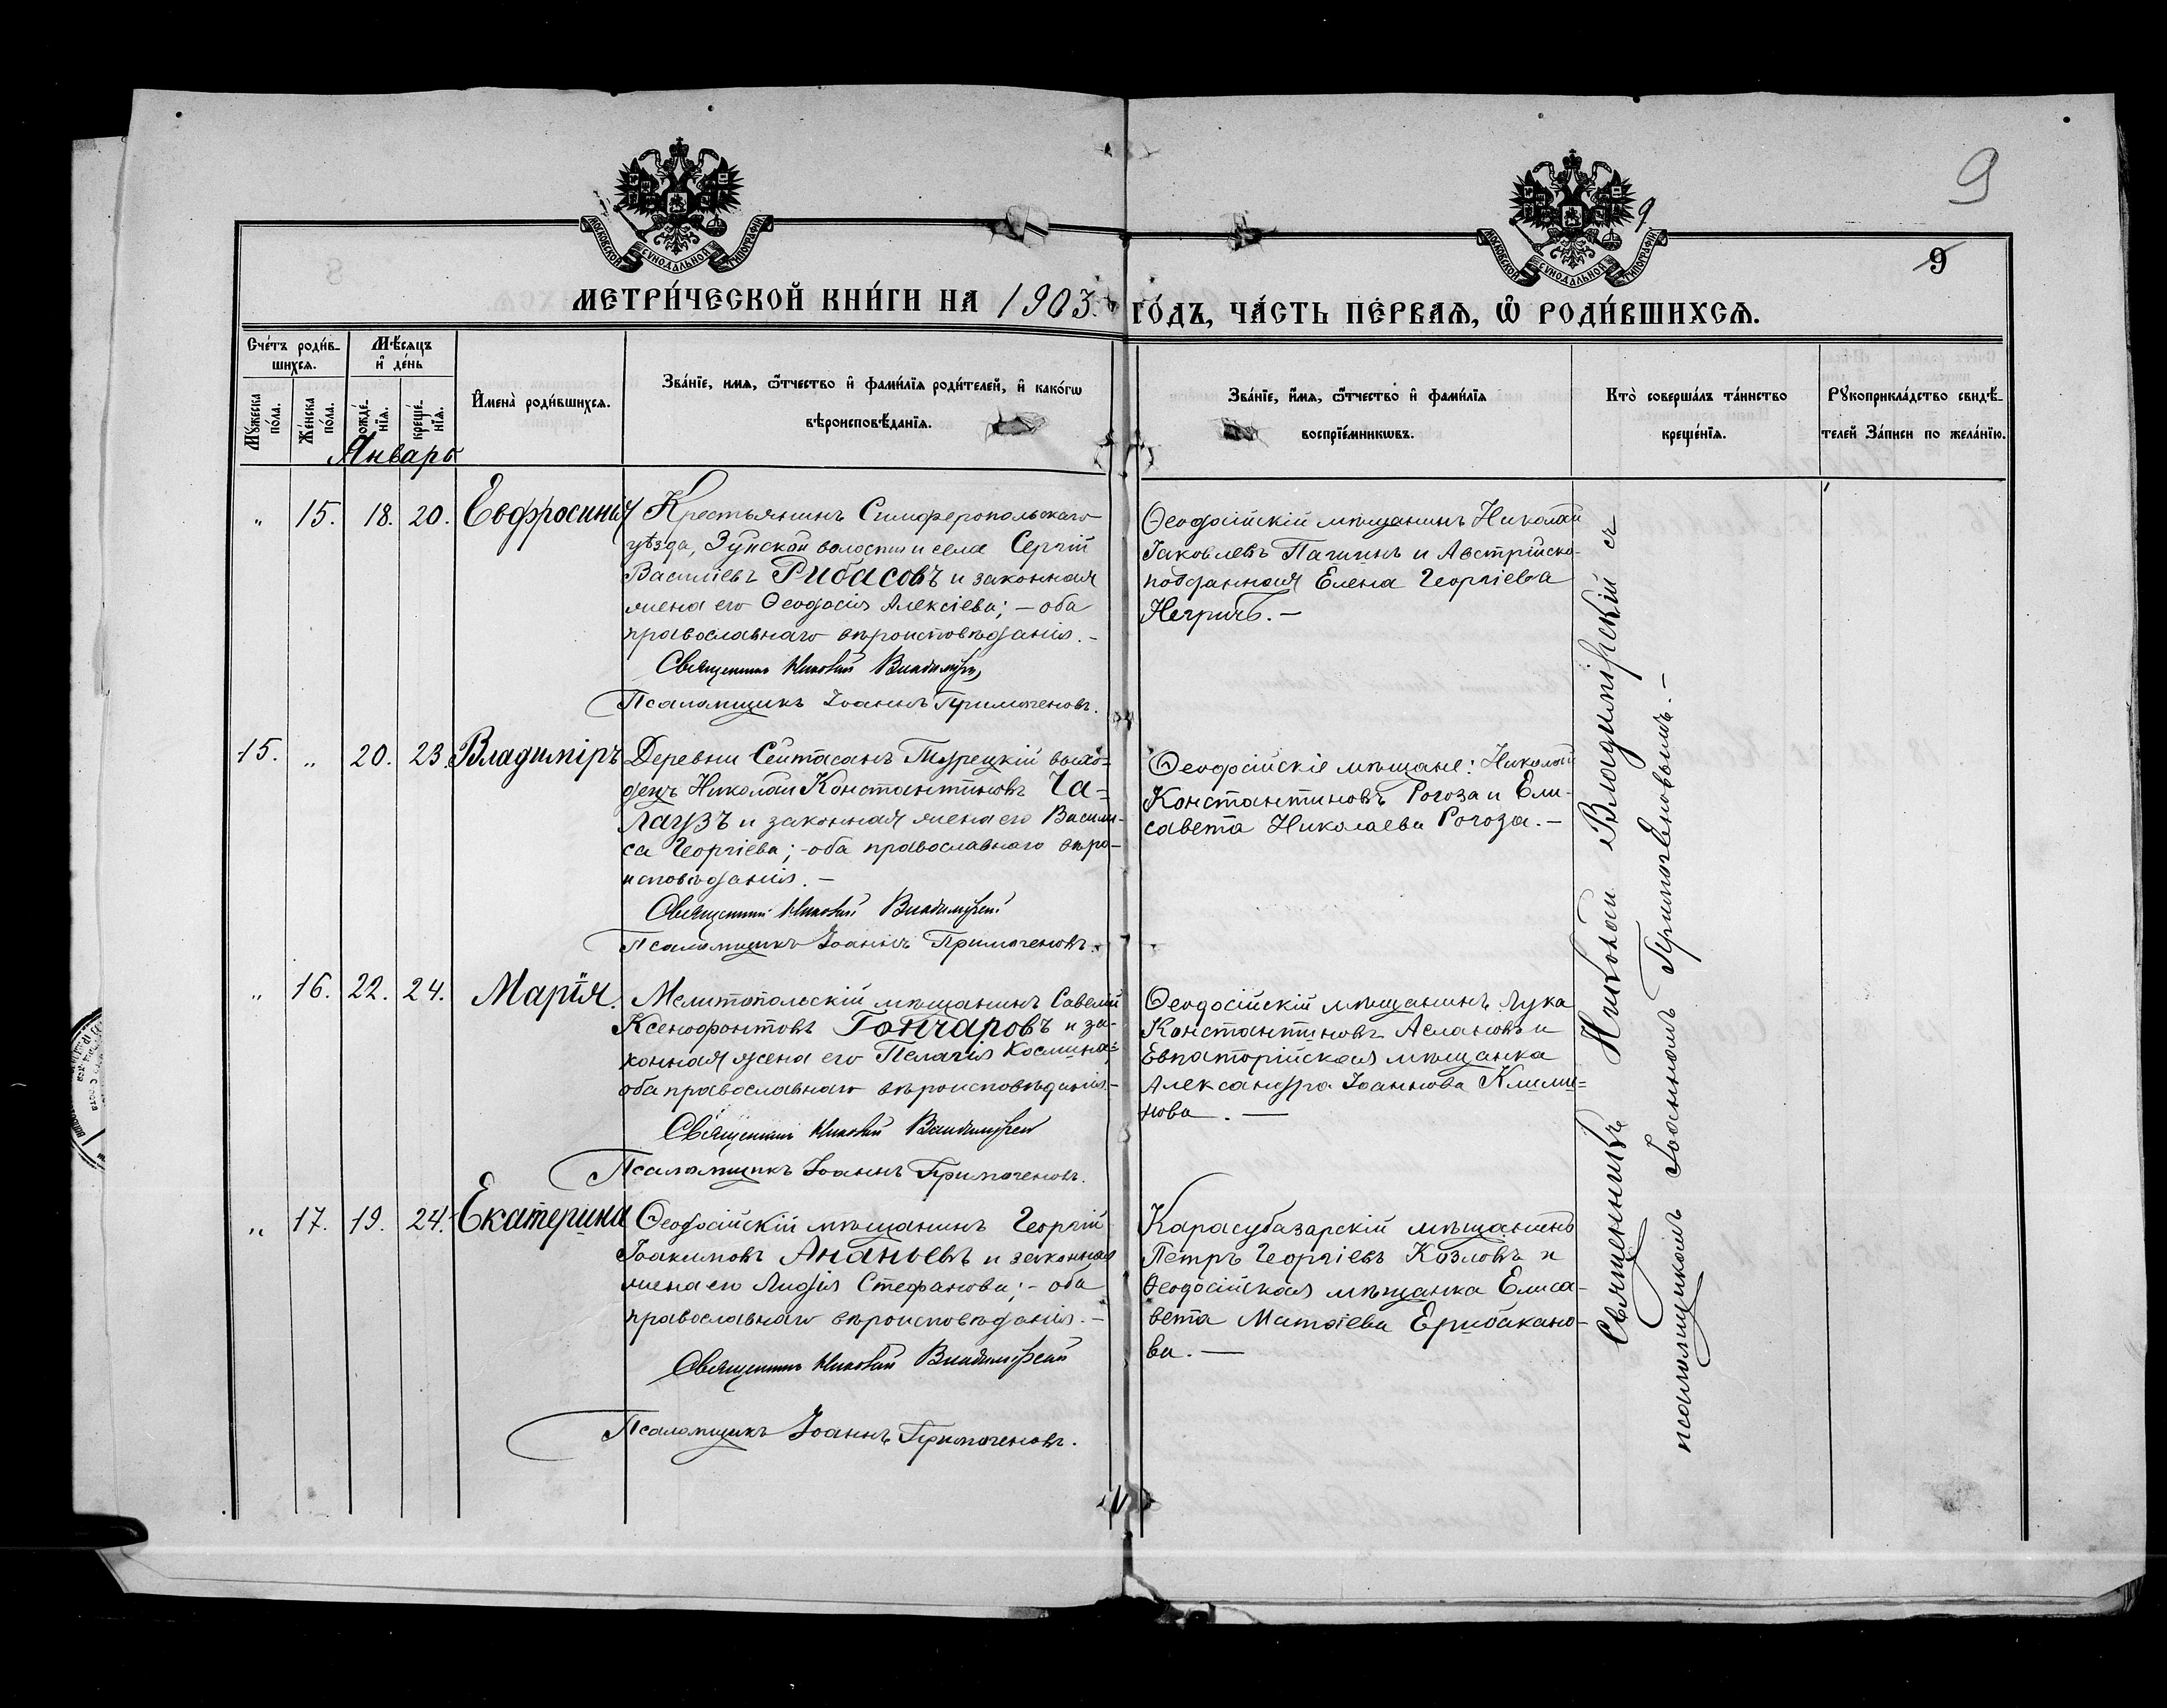 9
МОСКОВСКОЙ СУНОДАЛЬНОЙ ТИПОГРАФІИ
МОСКОВСКОЙ СУНОДАЛЬНОЙ ТИПОГРАФІИ
9
9
МЕТРИ́ЧЕСКОЙ КНИ́ГИ НА 1903. ГО́ДЪ, ЧА́СТЬ ПЕ́РВАѦ, Ѽ РОДИ́ВШИХСѦ.
Сче́тъ роди́в-
шихсѧ.
Мѣ́сѧцъ
и҆ де́нь
Мꙋ́жеска
по́ла.
Же́нска
по́ла.
рожде́-
нїѧ.
креще́-
нїѧ.
И҆мена̀ роди́вшихсѧ.
Зва́нїе, имѧ, ѻ҆́тчество и҆ фами́лїѧ роди́телей, и҆ како́гѡ
вѣроисповѣ́данїѧ.
Зва́нїе, и҆́мѧ, ѻ҆́тчество и҆ фами́лїѧ
воспрїе́мникѡвъ.
Кто̀ соверша́лъ та́инство
креще́нїѧ.
Рꙋкоприкла́дство свидѣ́-
телей За́писи по жела́нїю.
Январь
" 15. 18. 20. Евфросинія
Крестьянинъ Симферопольскаго
уѣзда, Зуйской волости и села Сергій
Василіевъ Рибасовъ и законная
жена его Ѳеодосія Алексіева; — оба
православнаго вѣроисповѣданія. -
Священникъ Николай Владимірскій
Псаломщикъ Іоаннъ Примоченовъ.
Ѳеодосійскій мѣщанинъ Николай
Іаковлевъ Пачинъ и Австрійско-
подданная Елена Георгіева
Негричъ. —
15. " 20. 23. Владиміръ
Деревни Сеитасанъ Турецкій выхо-
децъ Николай Константиновъ Ча-
лаузъ и законная жена его Васили-
са Георгіева; - оба православнаго вѣро-
исповѣданія. —
Священникъ Николай Владимірскій
Псаломщикъ Іоаннъ Примоченовъ.
Ѳеодосійскіе мѣщане: Николай
Константиновъ Рогоза и Ели-
савета Николаева Рогоза. —
" 16. 22. 24. Марія.
Мелитопольскій мѣщанинъ Савелій
Ксенофонтовъ Гончаровъ и за-
конная жена его Пелагія Космина;
оба православнаго вѣроисповѣданія. -
Священникъ Николай Владимірскій
Псаломщикъ Іоаннъ Примоченовъ.
Ѳеодосійскій мѣщанинъ Лука
Константиновъ Аслановъ и
Евпаторійская мѣщанка
Александра Іоаннова Клими-
нова. —
" 17. 19. 24. Екатерина
Ѳеодосійскій мѣщанинъ Георгій
Іоакимовъ Ананьевъ и законная
жена его Лидія Стефанова; - оба
православнаго вѣроисповѣданія. —
Священникъ Николай Владимірскій
Псаломщикъ Іоаннъ Примоченовъ.
Карасубазарскій мѣщанинъ
Петръ Георгіевъ Козловъ и
Ѳеодосійская мѣщанка Елиса-
вета Матѳіева Ерибакано-
ва. —
Священникъ Николай Владимірскій съ
псаломщикомъ Іоанномъ Примоченовымъ. —